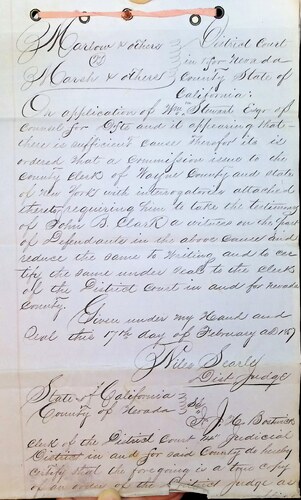 Marlow & others
vs
Marsh & others
District Court
in & for Nevada
County State of
California:
On application of Wm Stewart Esqr of
Counsel for Defts and it appearing that
there is sufficient cause therefor it is
ordered that a Commission issue to the
County Clerk of Wayne County and state
of New York with interrogatories attached
thereto requiring him to take the testimony
of John B. Clark a witness on the part
of Defendants in the above Cause and
reduce the same to Writing and to cer
tify the same under Seal to the Clerk
of the District Court in and for Nevada
County.
Given under my Hand and
Seal this 17th day of February AD 1857
Niles Searls
Dist Judge
State of California
County of Nevada
I, J. H. Bostwick
Clerk of the District Court Judicial
District in and for said County do hereby
Certify that the foregoing is a true copy
of an order of the District Judge as